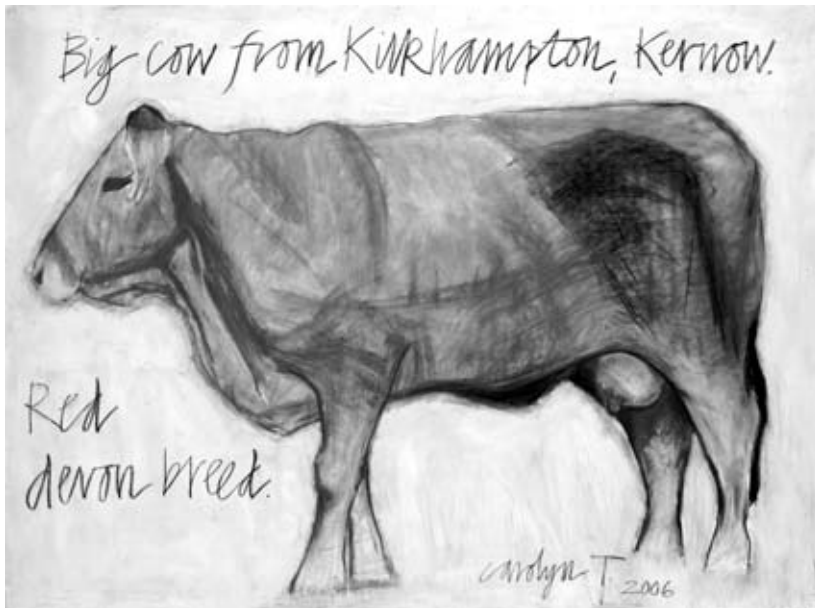 Big cow from Kilkhampton, Kernow.
Red
devon breed.
carolyn T. 2006